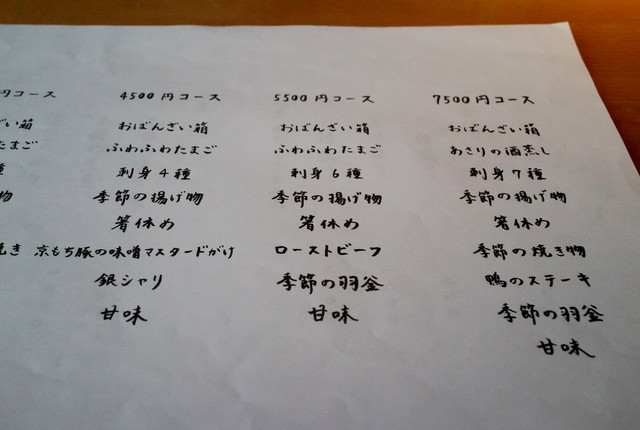 円コース
ざい箱
たまご
種
物
焼き
4500円コース
おばんざい箱
ふわふわたまご
刺身4種
季節の揚げ物
箸休め
京もち豚の味噌マスタードがけ
銀シャリ
甘味
5500円コース
おばんざい箱
ふわふわたまご
刺身6種
季節の揚げ物
箸休め
ローストビーフ
季節の羽釜
甘味
7500円コース
おばんざい箱
あさりの酒蒸し
刺身7種
季節の揚げ物
箸休め
季節の焼き物
鴨のステーキ
季節の羽釜
甘味